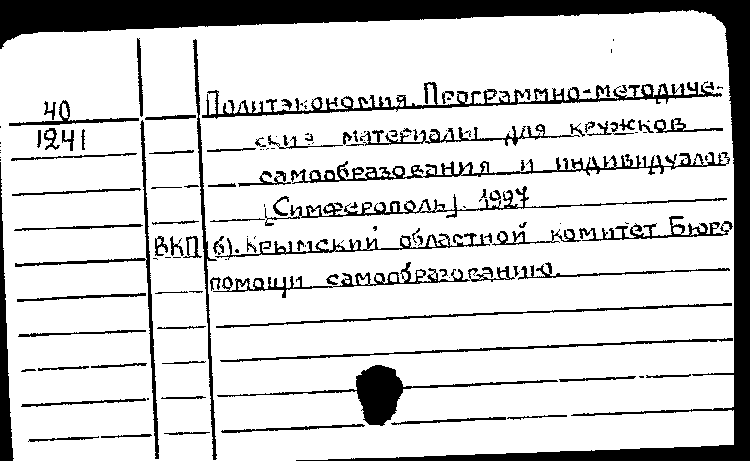 40
Политэкономия. Программно-методиче-
1241
ские материалы для кружков
самообразования и индивидуалов
[Симферополь]. 1927
ВКП(б). Крымский областной комитет Бюро
помощи самообразованию.